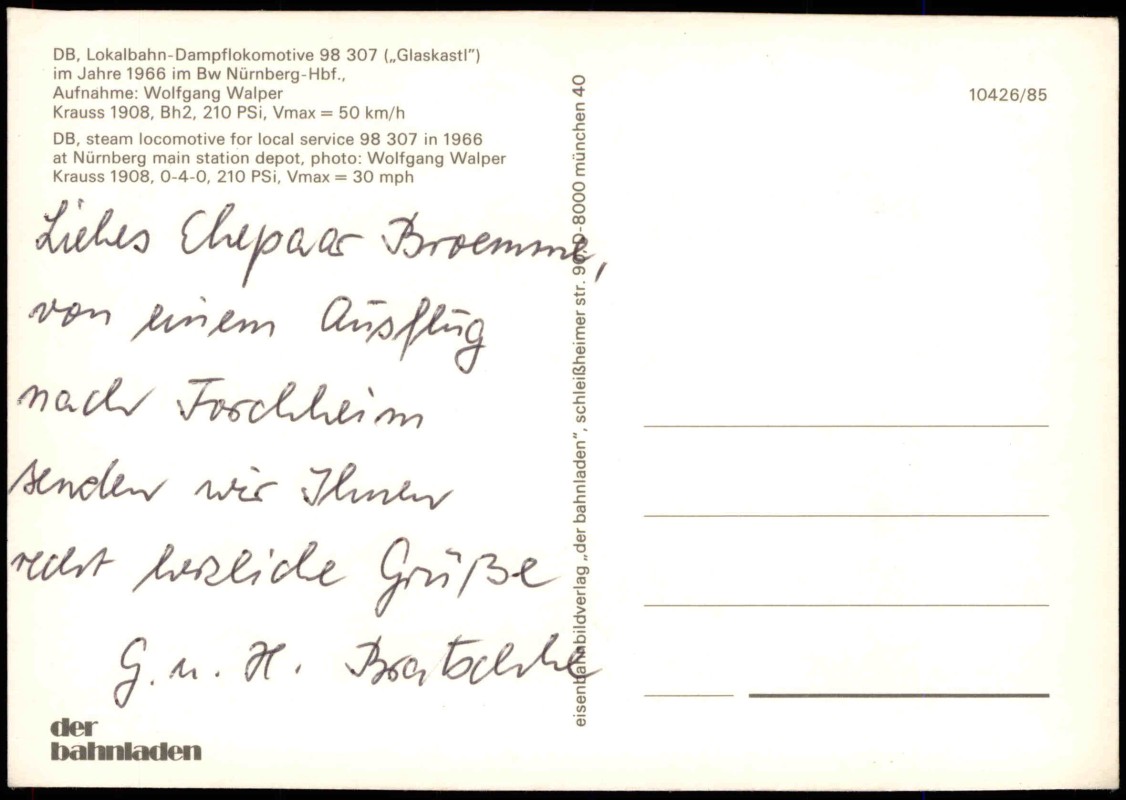 DB, Lokalbahn-Dampflokomotive 98 307 („Glaskastl”)
im Jahre 1966 im Bw Nürnberg-Hbf.,
Aufnahme: Wolfgang Walper
Krauss 1908, Bh2, 210 PSi, Vmax = 50 km/h
DB, steam locomotive for local service 98 307 in 1966
at Nürnberg main station depot, photo: Wolfgang Walper
Krauss 1908, 0-4-0, 210 PSi, Vmax = 30 mph
Liebes Ehepaar Broemme,
von einem Ausflug
nach Forchheim
senden wir Ihnen
recht herzliche Grüße
G. u. H.
der
bahnladen
eisenbahnbildverlag „der bahnladen”, schleißheimer str. D-8000 münchen 40
10426/85